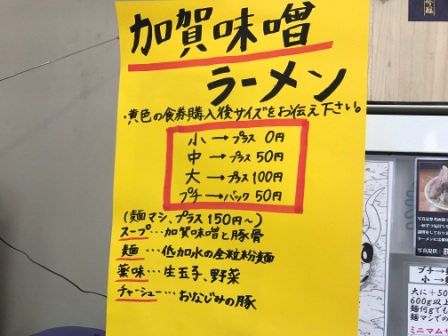 加賀味噌
ラーメン
・黄色の食券購入後サイズをお伝え下さい。
小→プラス 0円
中→プラス 50円
大→プラス 100円
プチ→バック 50円
(麺マシ、プラス150円〜)
スープ…加賀味噌と豚骨
麺…低加水の全粒粉麺
薬味…生玉子、野菜
チャーシュー…おなじみの豚
プチ→
小→
大に+50
600g
ミニマム